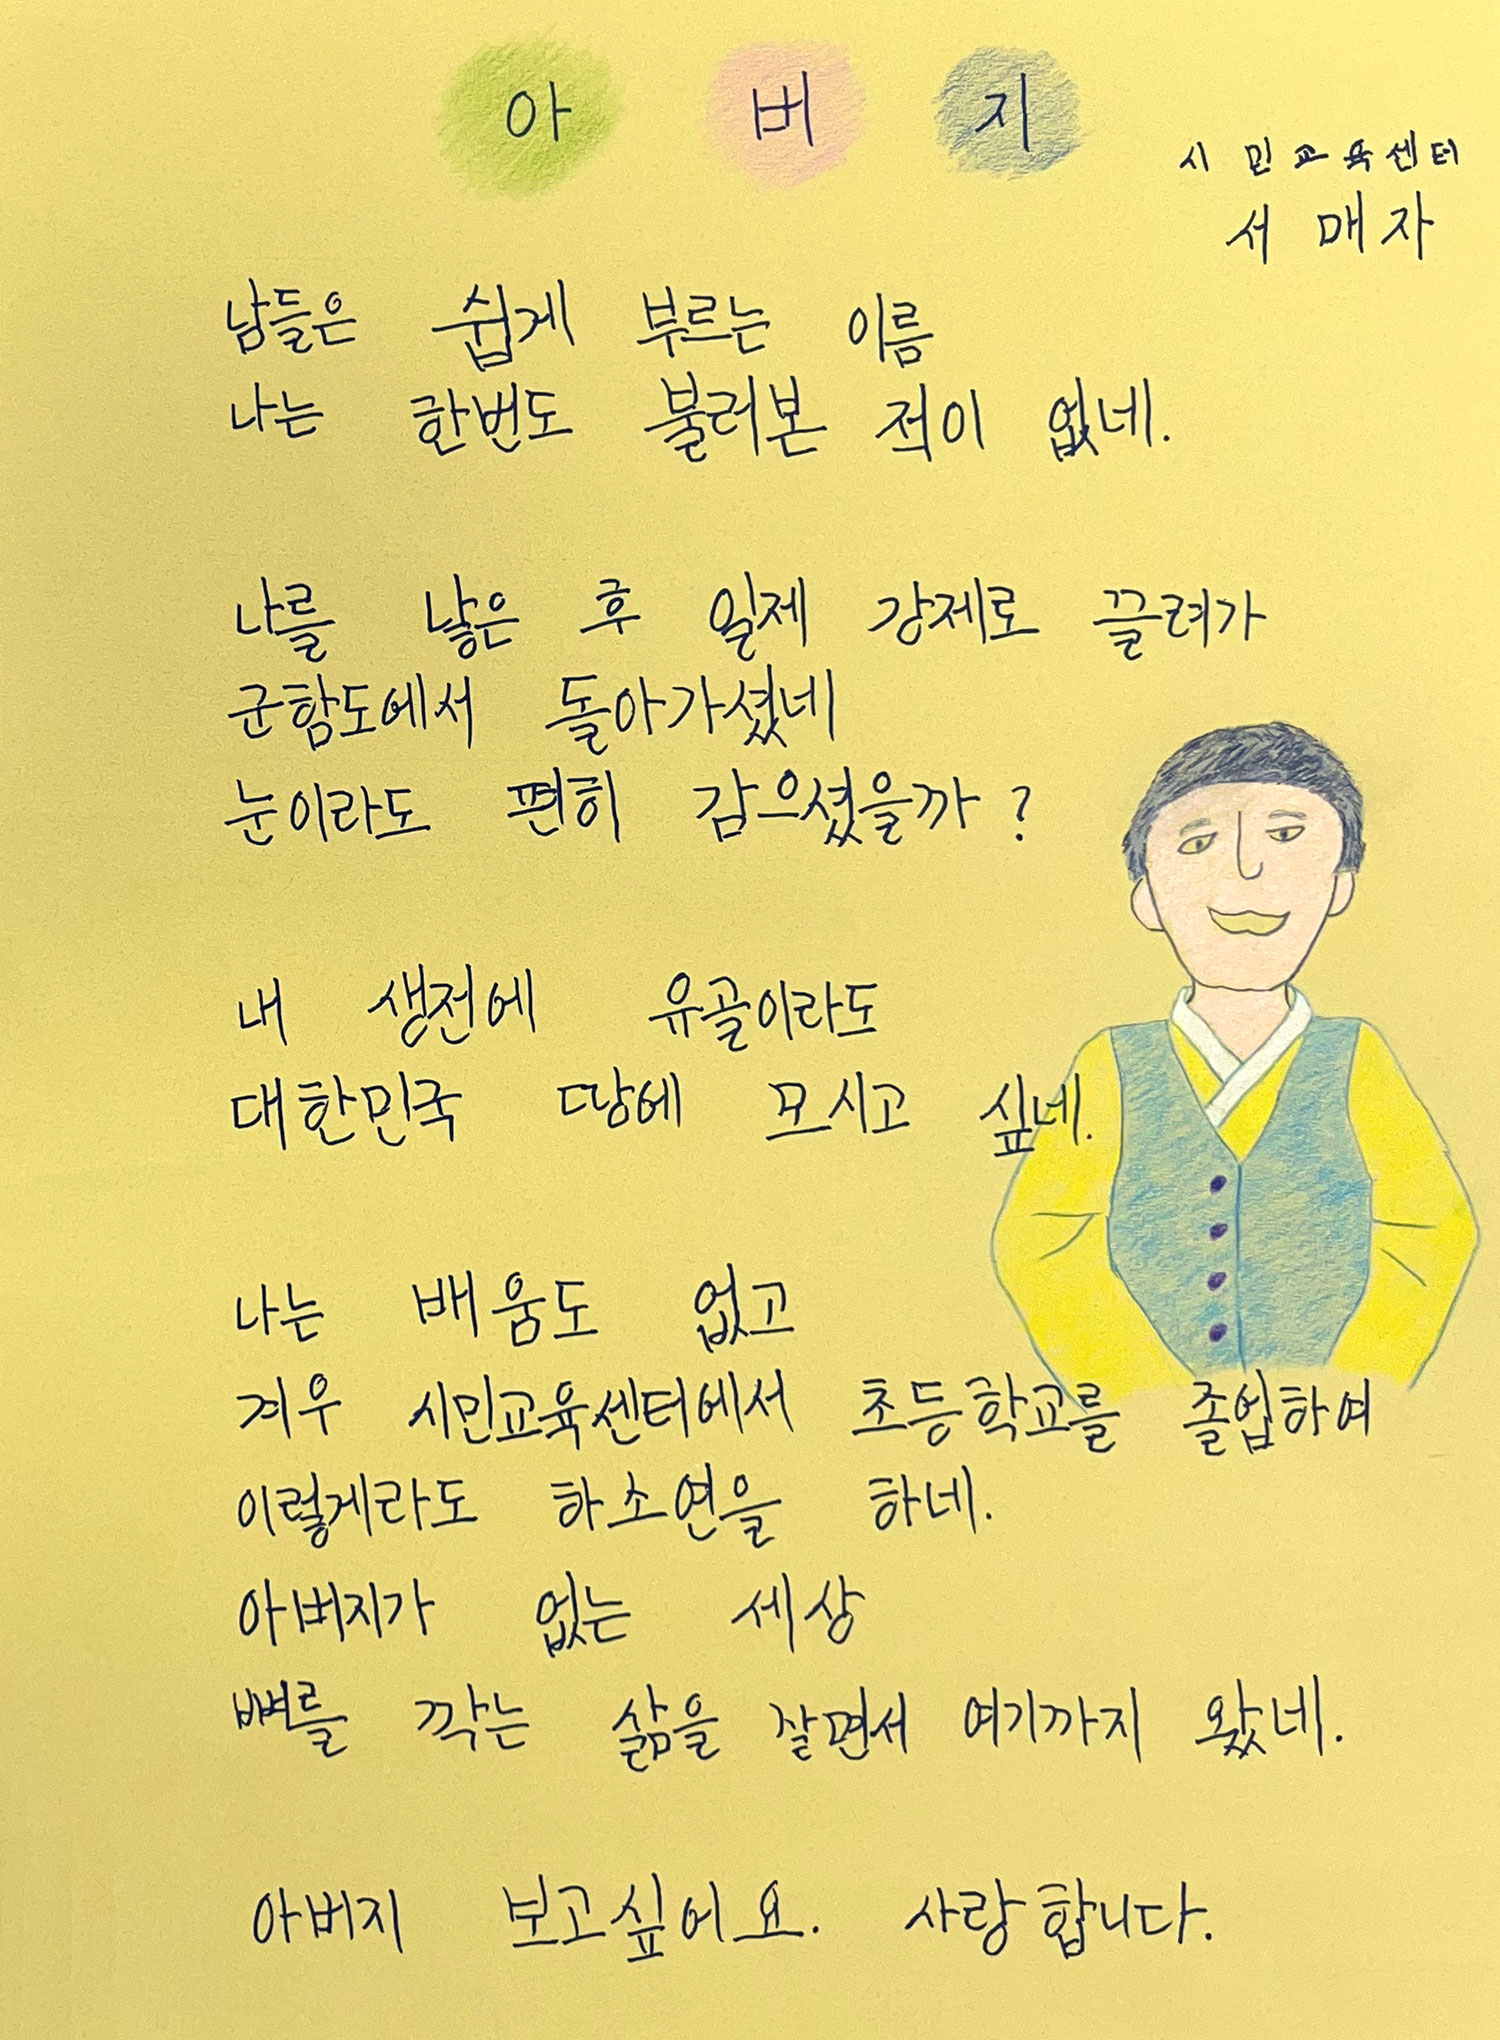 아버지
시민교육센터
서매자
남들은 쉽게 부르는 이름
나는 한번도 불러본 적이 없네.
나를 낳은 후 일제 강제로 끌려가
군함도에서 돌아가셨네
눈이라도 편히 감으셨을까?
내 생전에 유골이라도
대한민국 땅에 모시고 싶네.
나는 배움도 없고
겨우 시민교육센터에서 초등학교를 졸업하여
이렇게라도 하소연을 하네.
아버지가 없는 세상
뼈를 깍는 삶을 살면서 여기까지 왔네.
아버지 보고싶어요. 사랑합니다.